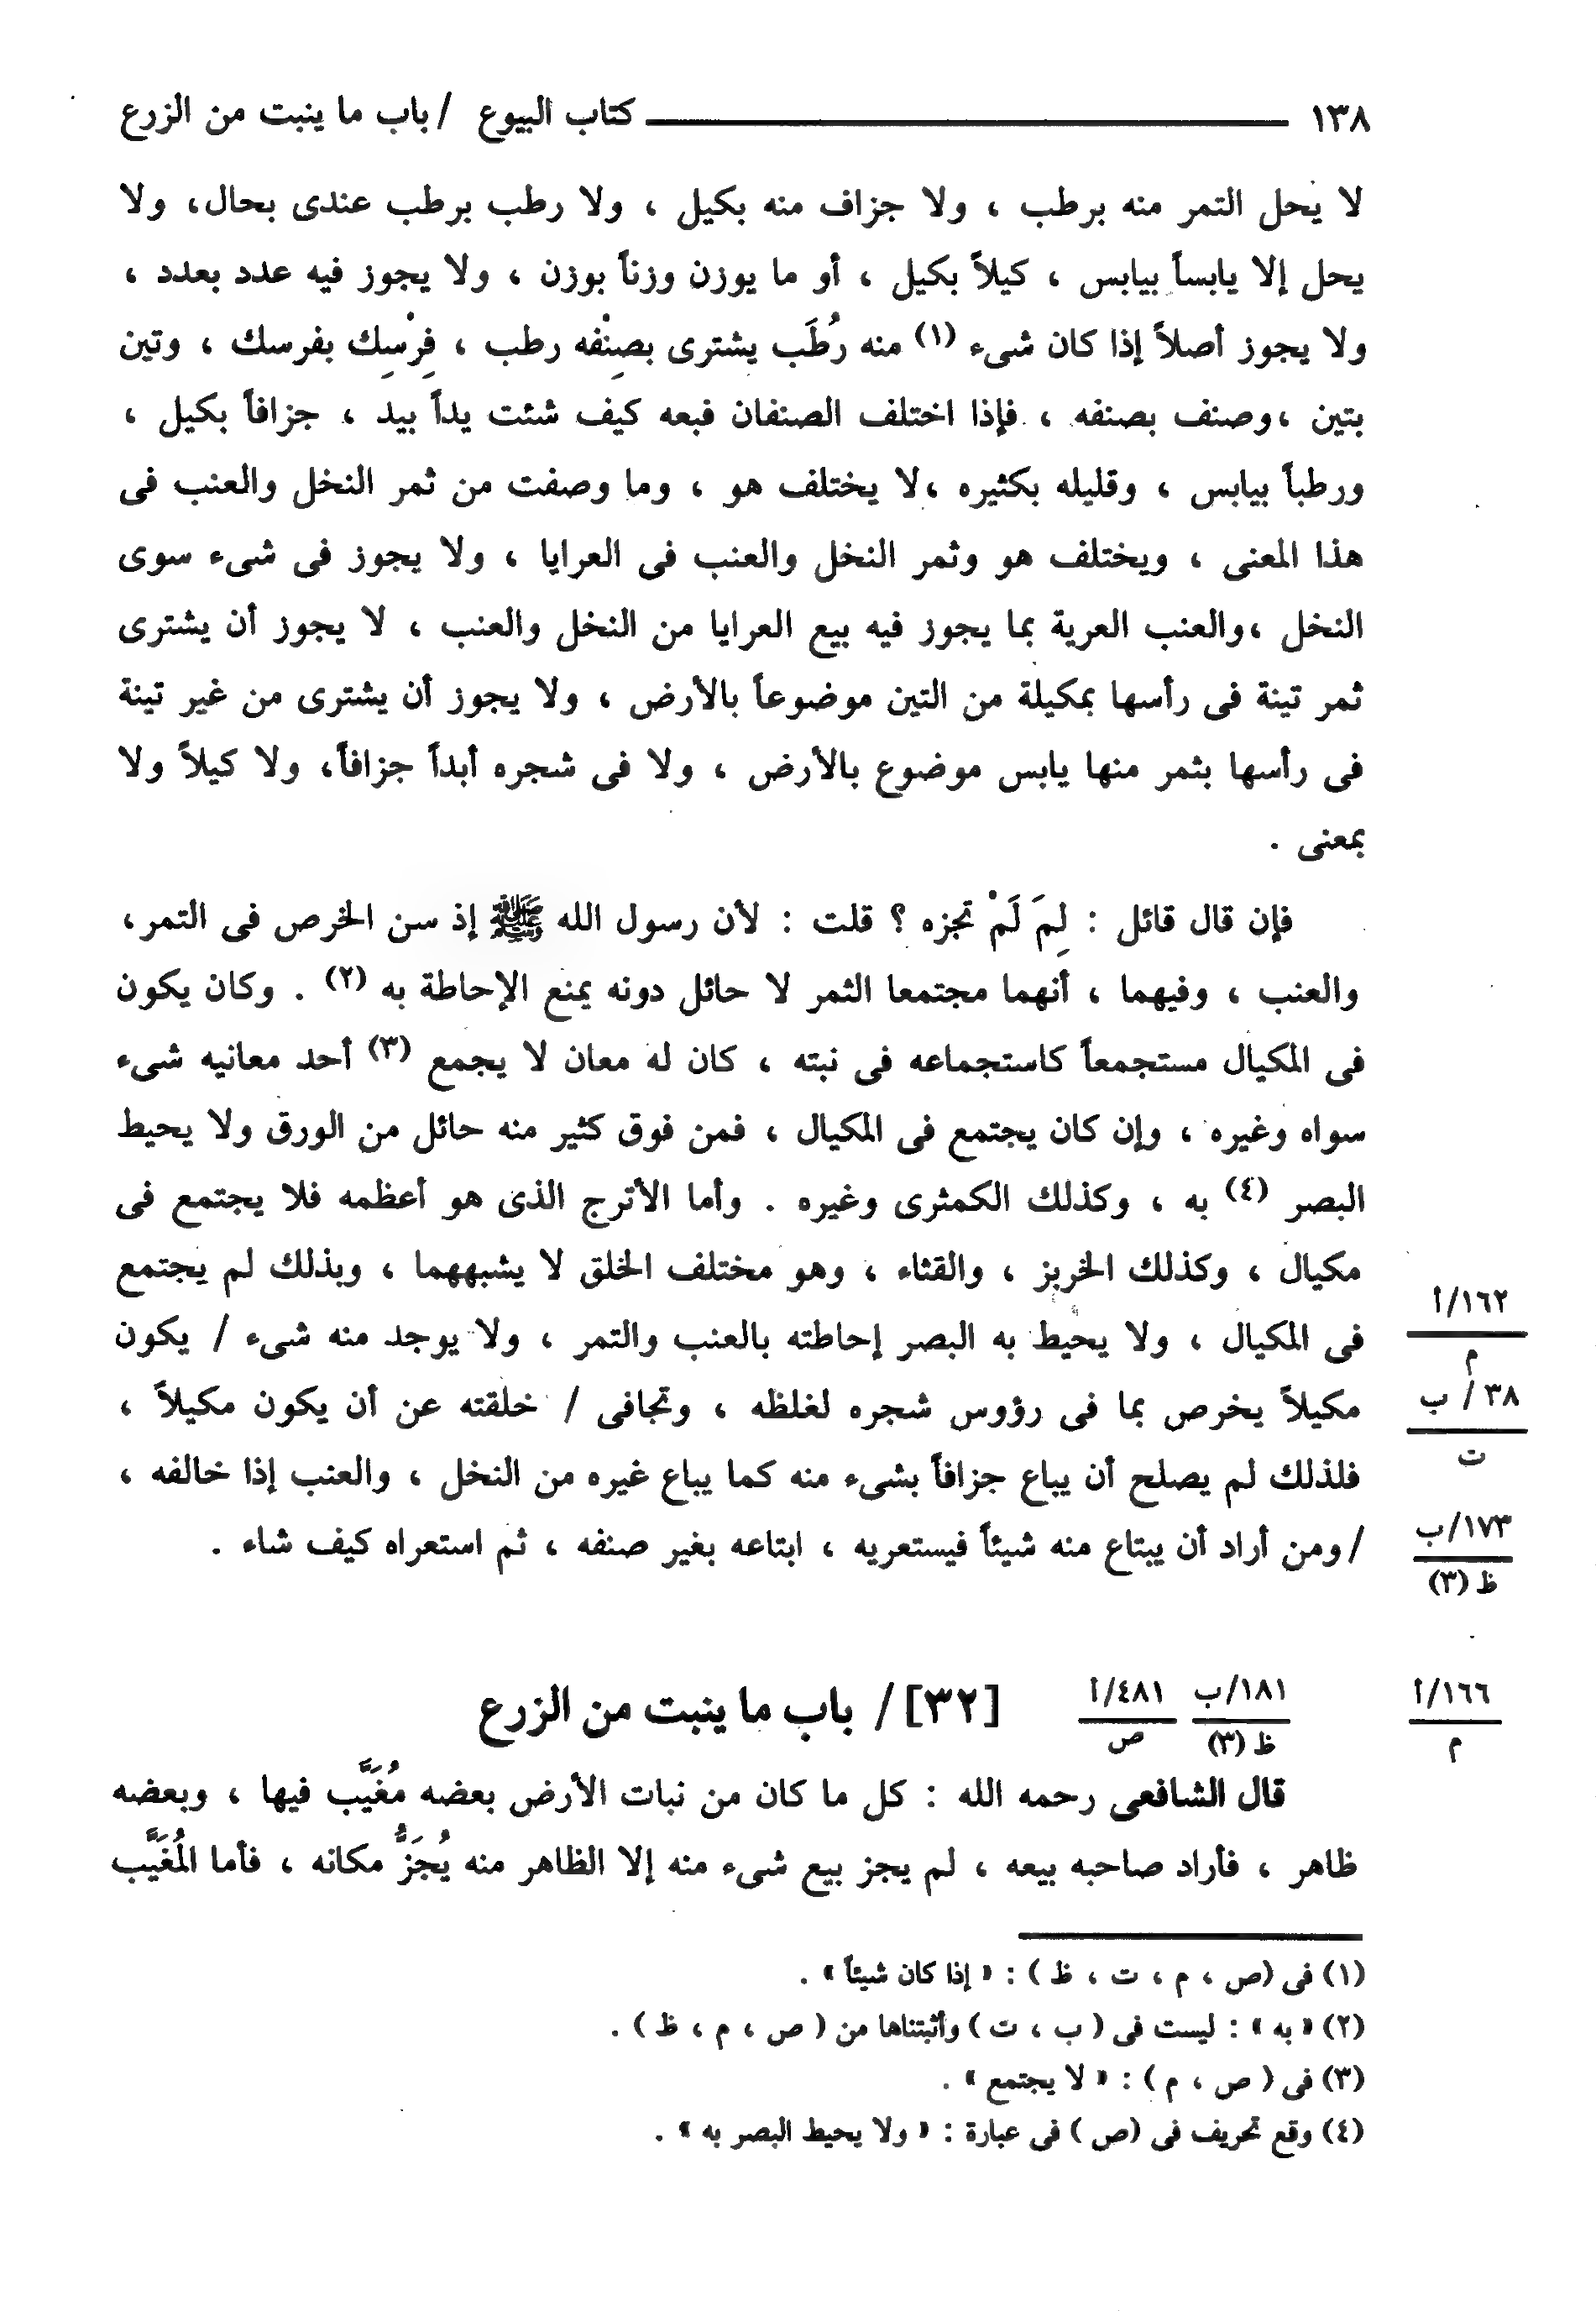 ١٣٨ كتاب البيوع / باب ما ينبت من الزرع
لا يحل التمر منه برطب ، ولا جزاف منه بكيل ، ولا رطب برطب عندى بحال، ولا
يحل إلا يابساً بيابس ، كيلاً بكيل ، أو ما يوزن وزناً بوزن ، ولا يجوز فيه عدد بعدد ،
ولا يجوز أصلاً إذا كان شىء (١) منه رُطَب يشترى بصِنْفه رطب ، فِرْسِك بفرسك ، وتين
بتين ،وصنف بصنفه ، فإذا اختلف الصنفان فبعه كيف شئت يداً بيد ، جزافاً بكيل ،
ورطباً بيابس ، وقليله بكثيره ،لا يختلف هو ، وما وصفت من ثمر النخل والعنب فى
هذا المعنى ، ويختلف هو وثمر النخل والعنب فى العرايا ، ولا يجوز فى شىء سوى
النخل ،والعنب العرية بما يجوز فيه بيع العرايا من النخل والعنب ، لا يجوز أن يشترى
ثمر تينة فى رأسها بمكيلة من التين موضوعاً بالأرض ، ولا يجوز أن يشترى من غير تينة
فى رأسها بثمر منها يابس موضوع بالأرض ، ولا فى شجره أبداً جزافاً، ولا كيلاً ولا
بمعنى .
فإن قال قائل : لِمَ لَمْ تجزه ؟ قلت : لأن رسول الله ﷺ إذ سن الخرص فى التمر،
والعنب ، وفيهما ، أنهما مجتمعا الثمر لا حائل دونه يمنع الإحاطة به (٢) . وكان يكون
فى المكيال مستجمعاً كاستجماعه فى نبته ، كان له معان لا يجمع (٣) أحد معانيه شىء
سواه وغيره ، وإن كان يجتمع فى المكيال ، فمن فوق كثير منه حائل من الورق ولا يحيط
البصر (٤) به ، وكذلك الكمثرى وغيره . وأما الأترج الذى هو أعظمه فلا يجتمع فى
مكيال ، وكذلك الخربز ، والقثاء ، وهو مختلف الخلق لا يشبههما ، وبذلك لم يجتمع
١٦٢/أ
م
فى المكيال ، ولا يحيط به البصر إحاطته بالعنب والتمر ، ولا يوجد منه شىء / يكون
٣٨ / ب
ت
مكيلاً يخرص بما فى رؤوس شجره لغلظه ، وتجافى / خلقته عن أن يكون مكيلاً ،
فلذلك لم يصلح أن يباع جزافاً بشىء منه كما يباع غيره من النخل ، والعنب إذا خالفه ،
١٧٣/ب
ظ (٣)
/ ومن أراد أن يبتاع منه شيئاً فيستعريه ، ابتاعه بغير صنفه ، ثم استعراه كيف شاء .
١٦٦/أ
م
١٨١/ب
ظ (٣)
٤٨١/أ
ص
[٣٢] / باب ما ينبت من الزرع
قال الشافعى رحمه الله : كل ما كان من نبات الأرض بعضه مُغَيَّب فيها ، وبعضه
ظاهر ، فأراد صاحبه بيعه ، لم يجز بيع شىء منه إلا الظاهر منه يُجَزُّ مكانه ، فأما المُغَيَّب
(١) فى (ص ، م ، ت ، ظ ) : « إذا كان شيئاً » .
(٢) « به » : ليست فى ( ب ، ت ) وأثبتناها من ( ص ، م ، ظ ) .
(٣) فى ( ص ، م ) : « لا يجتمع » .
(٤) وقع تحريف فى (ص ) فى عبارة : « ولا يحيط البصر به » .